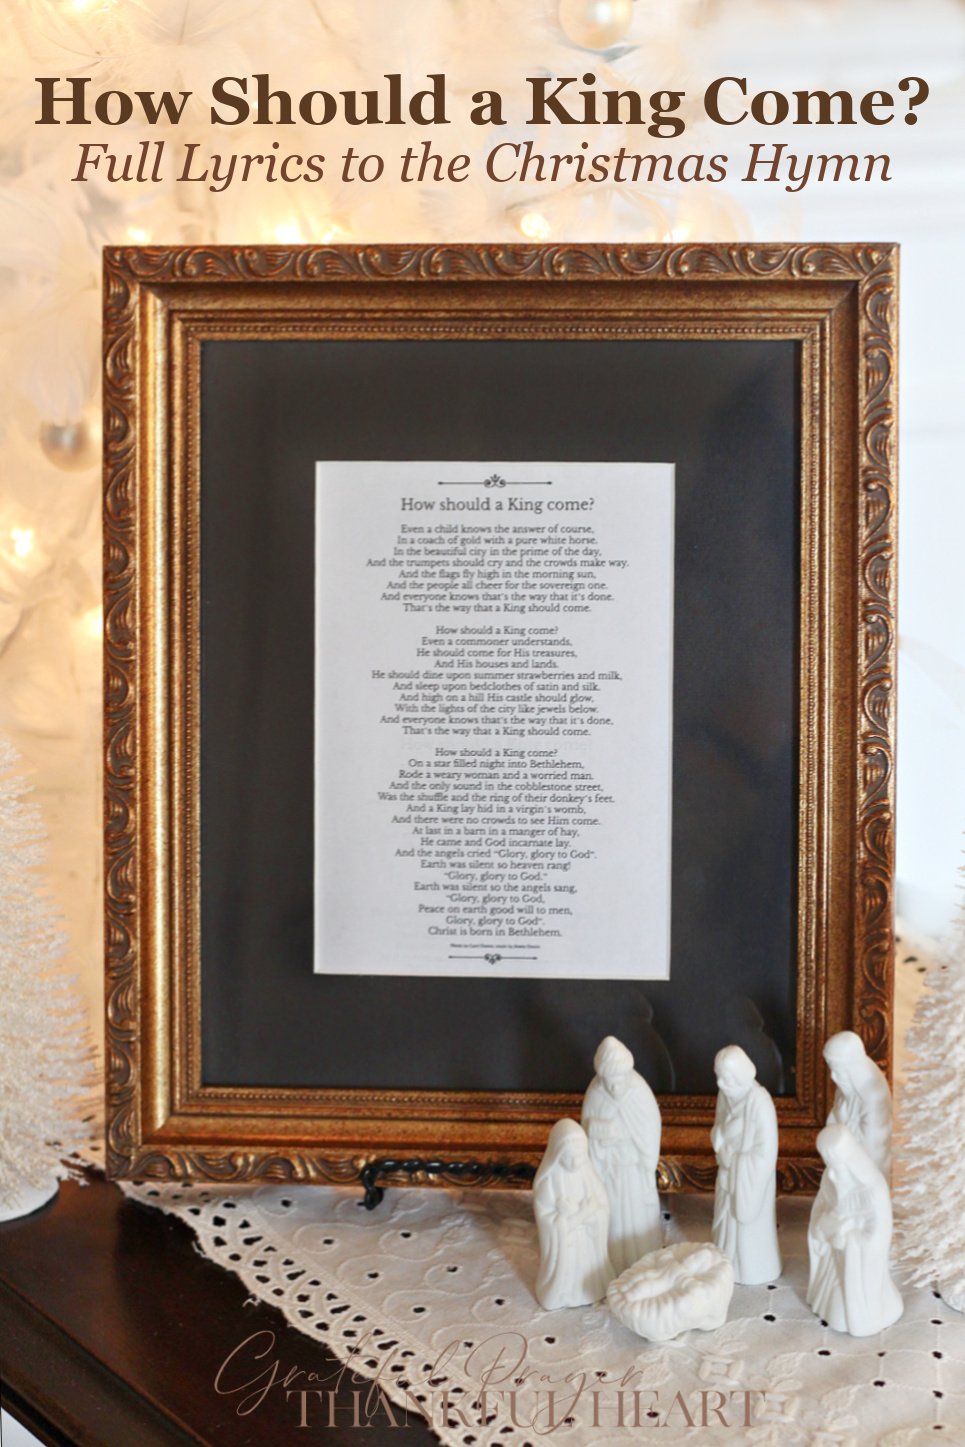 How Should a King Come?
Full Lyrics to the Christmas Hymn
How should a King come?
Even a child knows the answer of course,
In a coach of gold with a pure white horse.
In the beautiful city in the prime of the day,
And the trumpets should cry and the crowds make way.
And the flags fly high in the morning sun,
And the people all cheer for the sovereign one.
And everyone knows that's the way that it's done.
That's the way that a King should come.
How should a King come?
Even a commoner understands,
He should come for His treasures,
And His houses and lands.
He should dine upon summer strawberries and milk,
And sleep upon bedclothes of satin and silk.
And high on a hill His castle should glow,
With the lights of the city like jewels below.
And everyone knows that's the way that it's done,
That's the way that a King should come.
How should a King come?
On a star filled night into Bethlehem,
Rode a weary woman and a worried man.
And the only sound in the cobblestone street,
Was the shuffle and the ring of their donkey's feet.
And a King lay hid in a virgin's womb,
And there were no crowds to see Him come.
At last in a barn in a manger of hay,
He came and God incarnate lay.
And the angels cried "Glory, glory to God".
Earth was silent so heaven rang!
"Glory, glory to God."
Earth was silent so the angels sang,
"Glory, glory to God,
Peace on earth good will to men,
Glory, glory to God".
Christ is born in Bethlehem.
Grateful Prayer
THANKFUL HEART